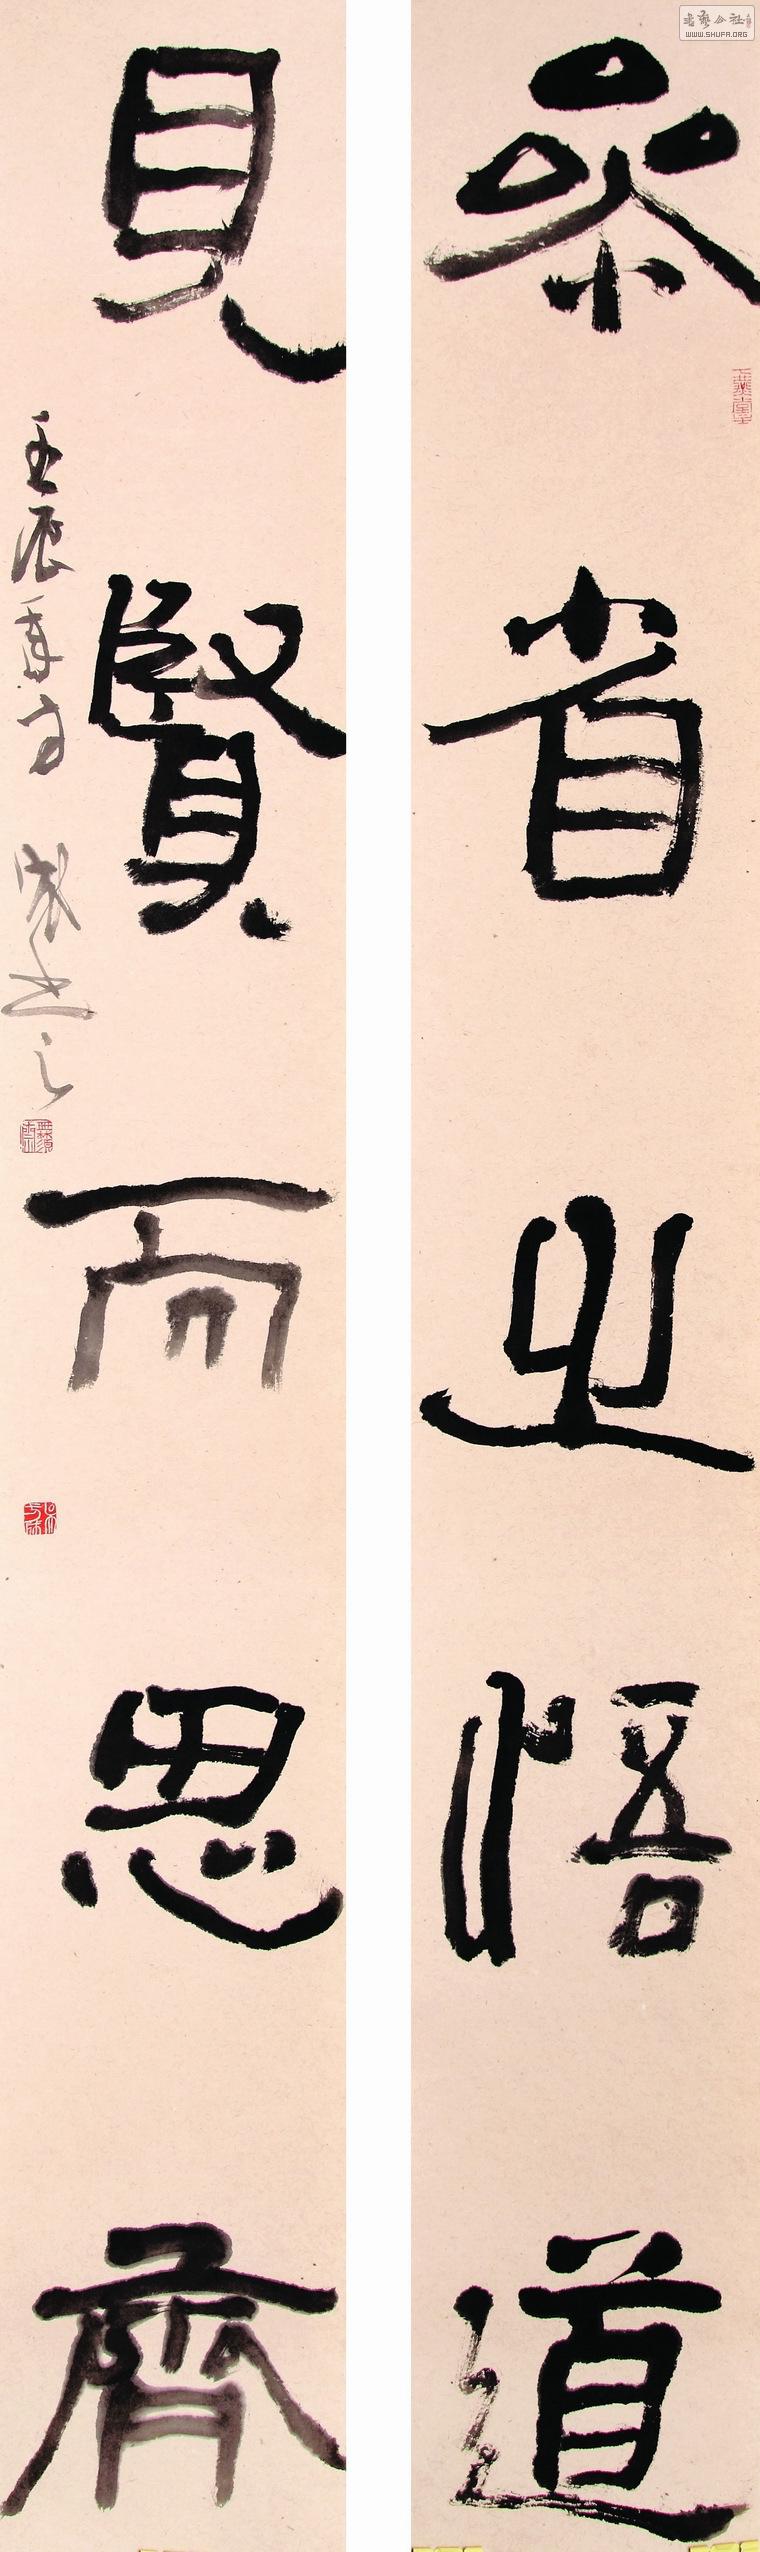 書藝公社
WWW.SHUFA.ORG
參省之悟道
見賢而思齊
壬辰年